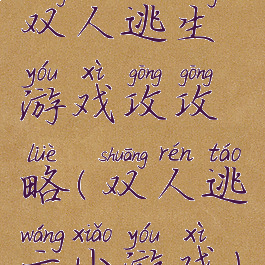 双人逃生
yóu xì gōng gōng
游戏攻攻
lüè shuāng rén táo
略(双人逃
wáng xiǎo yóu xì
亡小游戏)